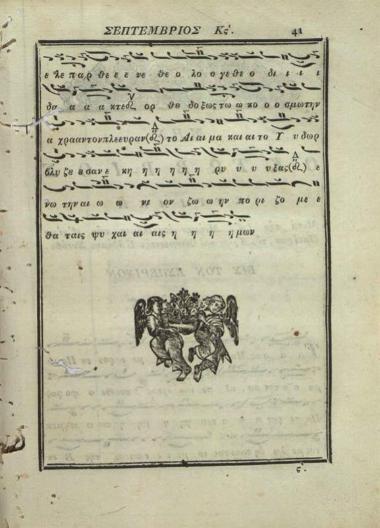 ΣΕΠΤΕΜΒΡΙΟΣ Κς. 41
ε λε παρ θε ε ε νε θε ο λο ογε θε ι ο δι ι ι ι
δα α α α κτε ορ θο δοξως τω ω κο ο ο σμω την
α χρααντον πλευραν το Αι αι μα και αι το Υ υ δωρ
βλυ ζε ε σαν ε κη η η η η η ρυ υ υ υ ξας ε
νω την αι ω ω νι ον ζω ω ην πο ρι ζο με ε
θα ταις ψυ χαι αι αις η η η η μων
ς.